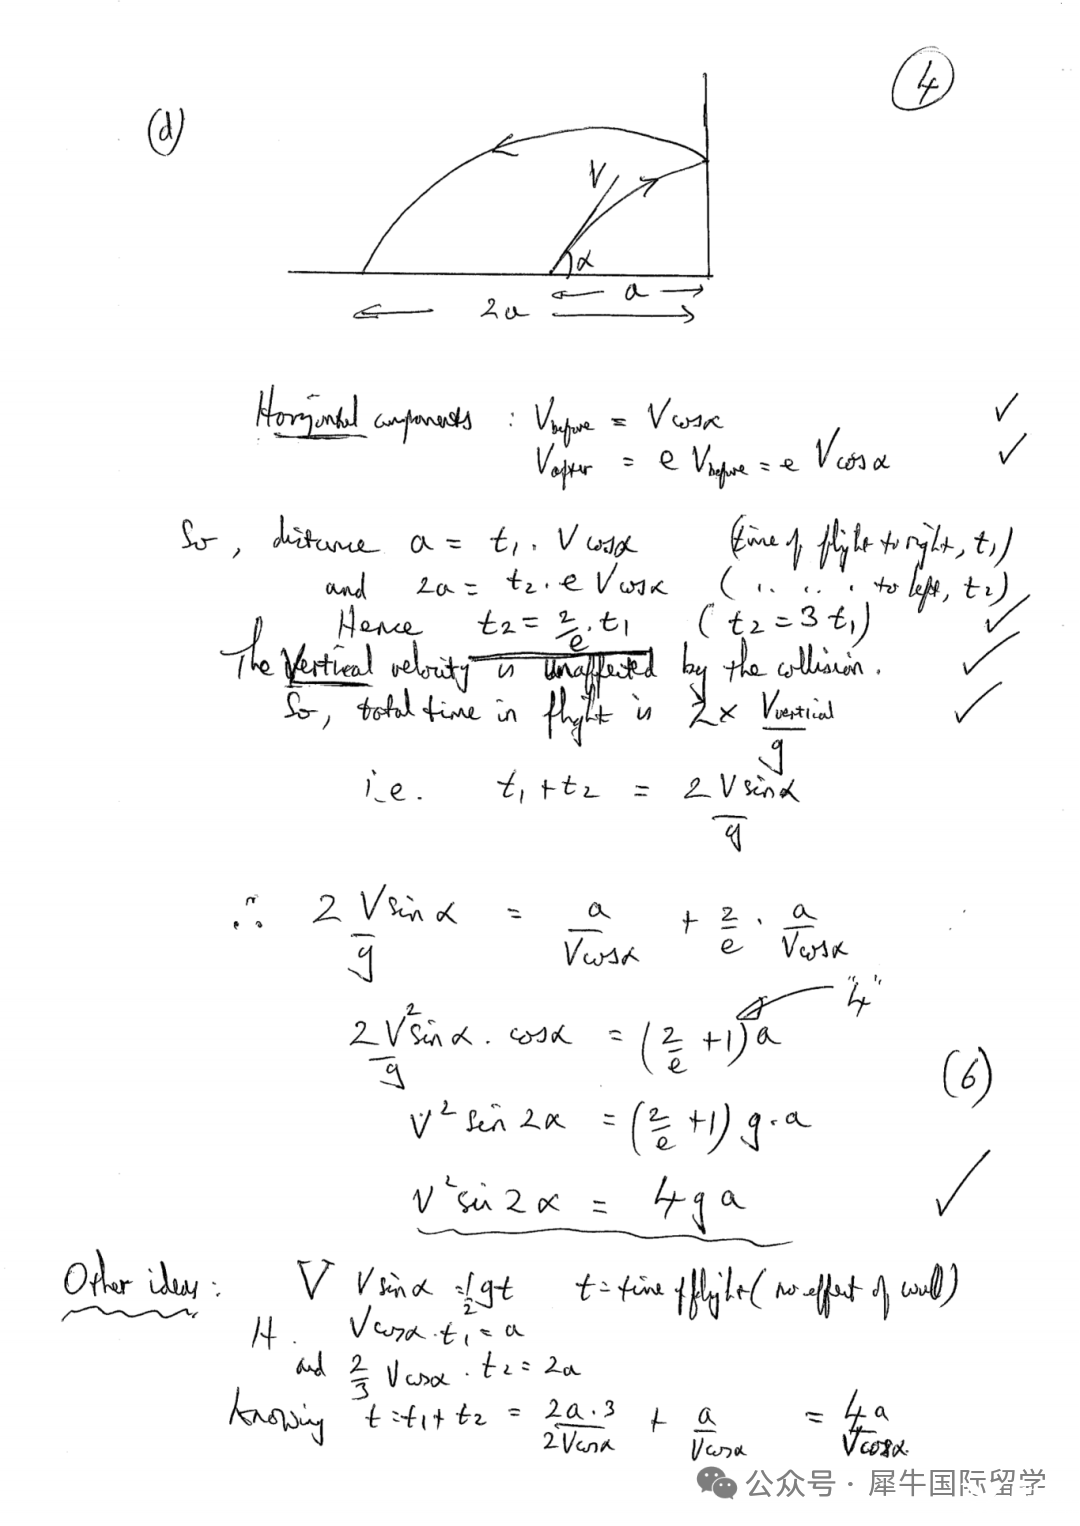 4
(d)
V
α
a
2a
Horizontal components : V before = V cosα ✓
V after = e V before = e V cosα ✓
So, distance a = t₁ . V cosα (time of flight to right, t₁)
and 2a = t₂ . e V cosα ( .. .. . to left, t₂)
Hence t₂ = 2/e . t₁ (t₂ = 3 t₁) ✓
The vertical velocity is unaffected by the collision. ✓
So, total time in flight is 2 × V vertical / g ✓
i.e. t₁ + t₂ = 2 V sinα / g
∴ 2 V sin α / g = a / V cosα + 2/e . a / V cosα
"4"
2 V² sin α . cosα / g = (2/e + 1) a
(6)
V² sin 2α = (2/e + 1) g . a
V² sin 2α = 4 g a ✓
Other ideas : V V sinα = ½ gt t = time of flight (no effect of wall)
H . V cosα . t₁ = a
and 2/3 V cosα . t₂ = 2a
knowing t = t₁ + t₂ = 2a . 3 / 2V cosα + a / V cosα = 4a / V cosα
公众号 · 犀牛国际留学